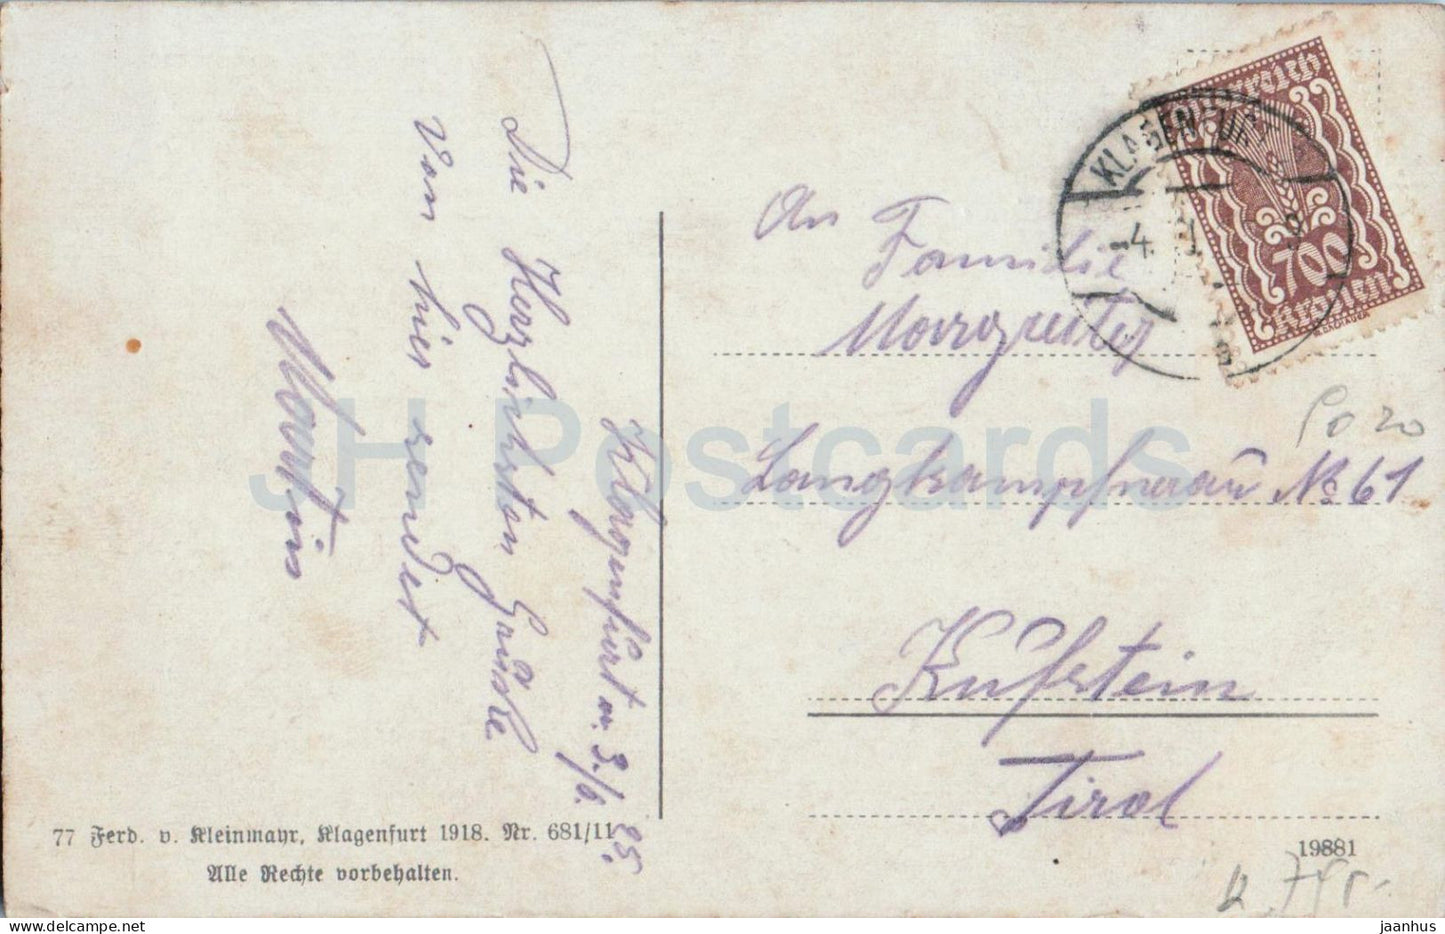 Klagenfurt am 3./6. 25.
Die Herzlichsten Grüsse
Von hier sendet
Martin
An
Familie
Margreiter
Langkampfnerau No 61
Kufstein
Tirol
Österreich
700
Kronen
KLAGENFURT
-4.
77 Ferd. v. Kleinmayr, Klagenfurt 1918. Nr. 681/11
Alle Rechte vorbehalten.
19881
JH Postcards
jaanhus @ delcampe.net